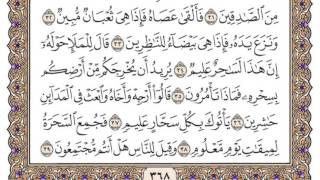 مِنَ ٱلصَّـٰدِقِينَ ٣١ فَأَلْقَىٰ عَصَاهُ فَإِذَا هِىَ ثُعْبَانٌ مُّبِينٌ ٣٢
وَنَزَعَ يَدَهُۥ فَإِذَا هِىَ بَيْضَآءُ لِلنَّـٰظِرِينَ ٣٣ قَالَ لِلْمَلَإِ حَوْلَهُۥٓ
إِنَّ هَـٰذَا لَسَـٰحِرٌ عَلِيمٌ ٣٤ يُرِيدُ أَن يُخْرِجَكُم مِّنْ أَرْضِكُم
بِسِحْرِهِۦ فَمَاذَا تَأْمُرُونَ ٣٥ قَالُوٓا۟ أَرْجِهْ وَأَخَاهُ وَٱبْعَثْ فِى ٱلْمَدَآئِنِ
حَـٰشِرِينَ ٣٦ يَأْتُوكَ بِكُلِّ سَحَّارٍ عَلِيمٍ ٣٧ فَجُمِعَ ٱلسَّحَرَةُ
لِمِيقَـٰتِ يَوْمٍ مَّعْلُومٍ ٣٨ وَقِيلَ لِلنَّاسِ هَلْ أَنتُم مُّجْتَمِعُونَ ٣٩
٣٦٨